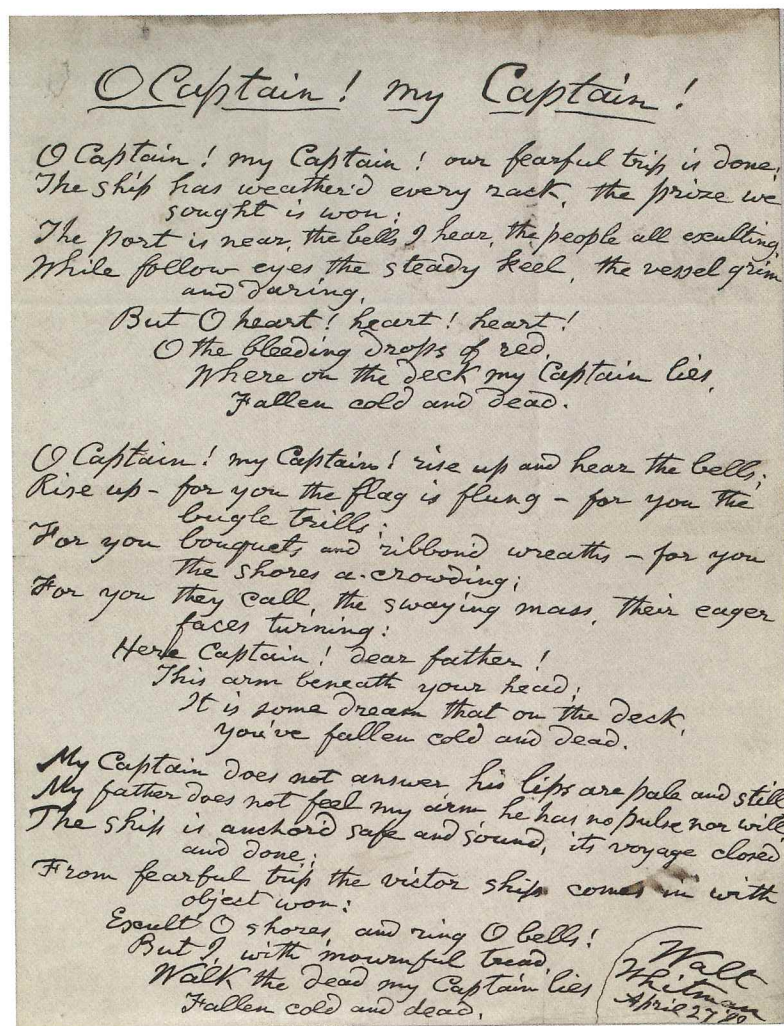 O Captain! my Captain!
O Captain! my Captain! our fearful trip is done;
The ship has weather'd every rack, the prize we
sought is won;
The port is near, the bells I hear, the people all exulting,
While follow eyes the steady keel, the vessel grim
and daring,
But O heart! heart! heart!
O the bleeding drops of red,
Where on the deck my Captain lies,
Fallen cold and dead.
O Captain! my Captain! rise up and hear the bells;
Rise up - for you the flag is flung - for you the
bugle trills;
For you bouquets and ribbon'd wreaths - for you
the shores a-crowding;
For you they call, the swaying mass, their eager
faces turning:
Here Captain! dear father!
This arm beneath your head;
It is some dream that on the deck,
You've fallen cold and dead.
My Captain does not answer, his lips are pale and still
My father does not feel my arm, he has no pulse nor will,
The ship is anchor'd safe and sound, its voyage closed
and done;
From fearful trip the victor ship comes in with
object won:
Exult O shores, and ring O bells!
But I, with mournful tread,
Walk the dead my Captain lies
Fallen cold and dead.
Walt
Whitman
April 27